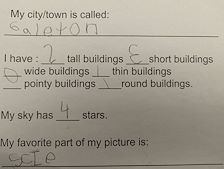 My city/town is called:
Galeton
I have: 2 tall buildings 3 short buildings
wide buildings 1 thin buildings
pointy buildings 1 round buildings.
My sky has 4 stars.
My favorite part of my picture is: